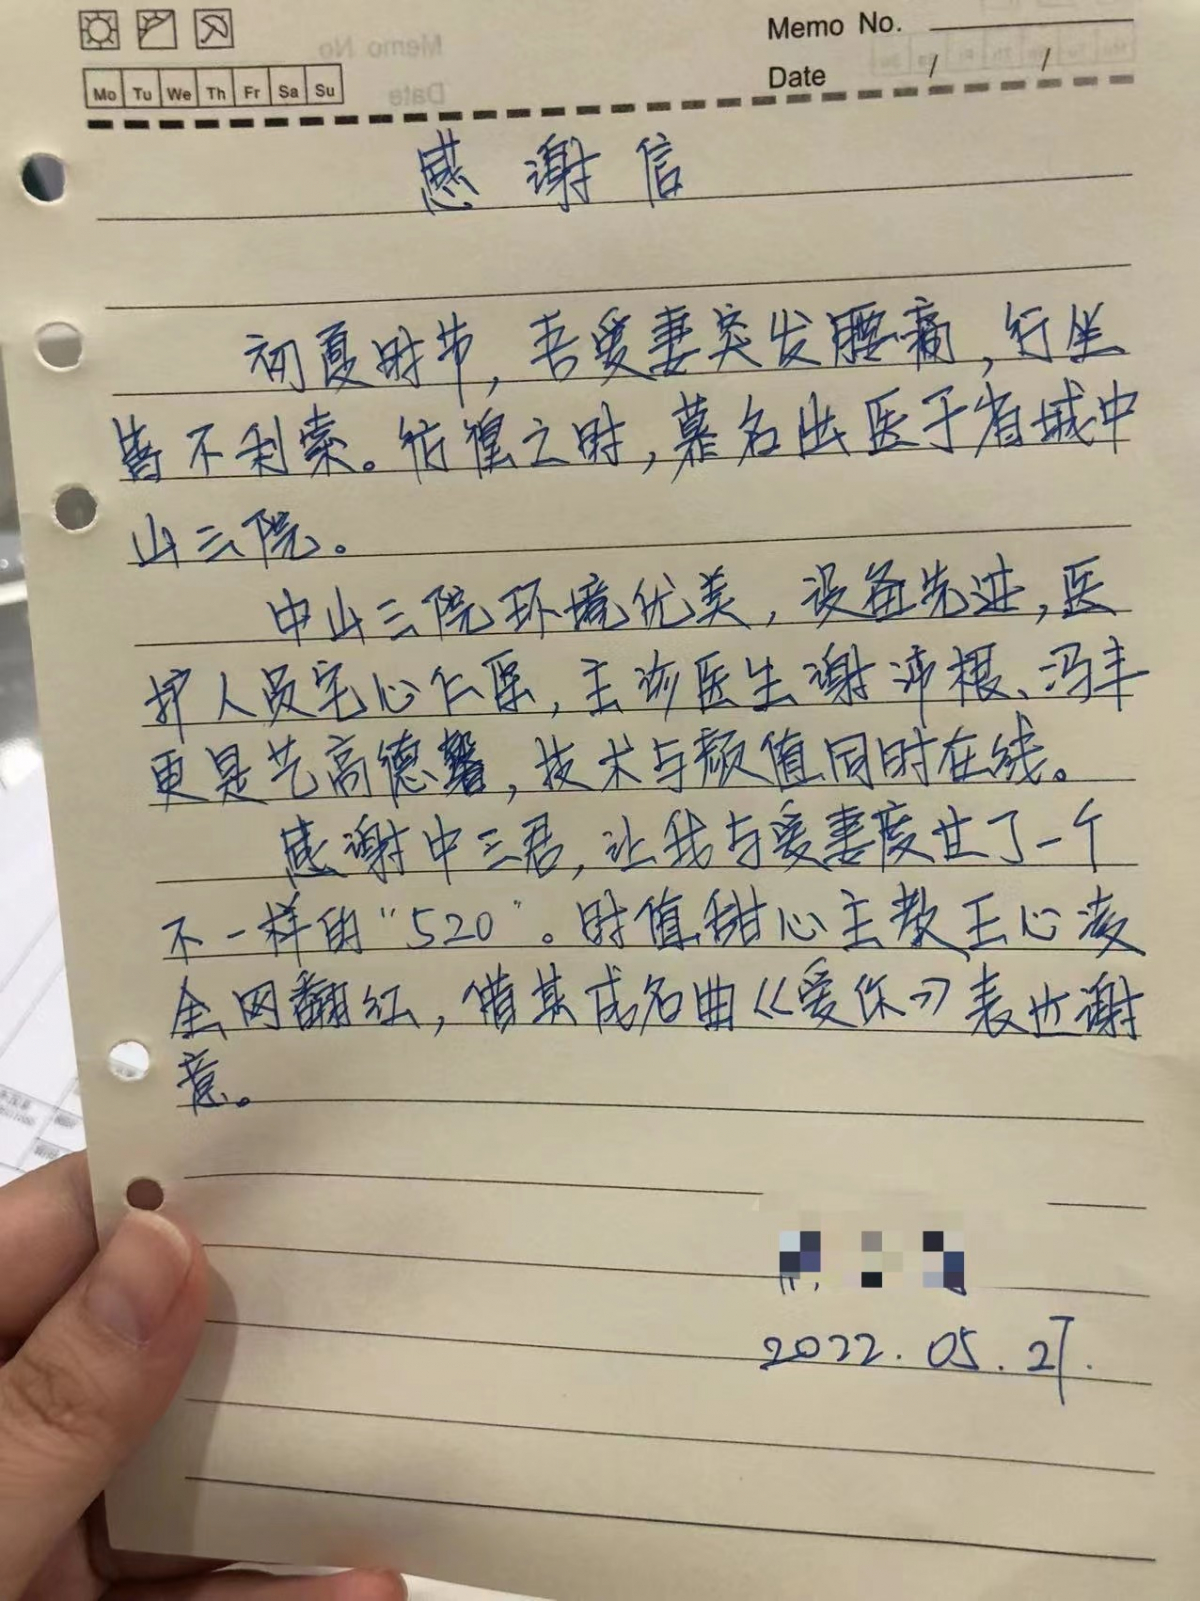 Memo No.
Date / /
Mo Tu We Th Fr Sa Su
感谢信
初夏时节，吾爱妻突发腰痛，行坐
皆不利索。彷徨之时，慕名出医于省城中
山三院。
中山三院环境优美，设备先进，医
护人员宅心仁医，主诊医生谢沛根、冯丰
更是艺高德馨，技术与颜值同时在线。
感谢中三君，让我与爱妻度过了一个
不一样的“520”。时值甜心主教王心凌
全网翻红，借其成名曲《爱你》表达谢
意。
2022.05.27.